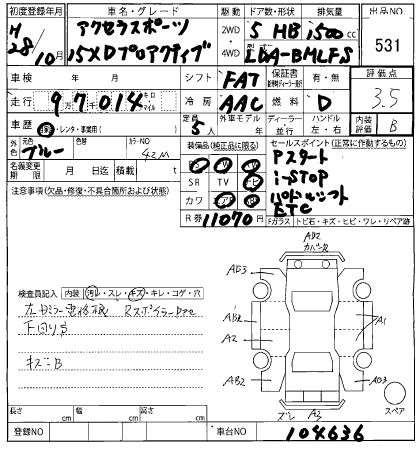 初度登録年月 車名・グレード 駆動 ドア数・形状 排気量 出品NO
H28/10月 アクセラスポーツ 2WD 5 HB 1500cc 531
15XDプロアクティブ 4WD LDA-BMLFS
車検 年 月 シフト FAT 保証書 有・無 評価点
走行 9万7千014キロ マイル 冷房 AAC 燃料 D 3.5
車歴 自家・レンタ・事業用( ) 定員 5人 外車モデル 年 ディーラー 並行 ハンドル 左・右 内装評価 B
外色 元色 ブルー 色替 カラーNO 42M 装備品(純正品に限る) セールスポイント(正常に作動するもの)
名義変更期限 月 日迄 積載 t Pスタート
注意事項(欠品・修復・不具合箇所および状態) SR TV ナビ i-STOP
カワ エアB パドルシフト
R券 11070円 ETC
Fガラス トビ石・キズ・ヒビ・ワレ・リペア跡
AB2
カバーズ
AB3
検査員記入 内装 汚レ・スレ・キズ・キレ・コゲ・穴
下回りサ
A2 A1
キズ=B
AB2 AD3
ズレ A3 スペア
長さ cm 幅 cm 高さ cm
登録NO 車台NO 104636